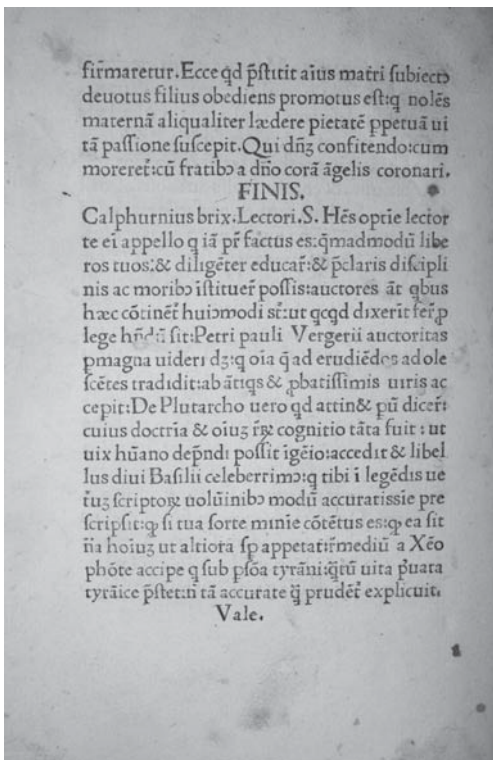 firmaretur.Ecce qd p̄ſtitit aiūs matri ſubiectꝰ
deuotus filius obediens promotus eſt:q nolēs
maternā aliqualiter lædere pietatē ꝑpetuā ui
tā paſſione ſuſcepit.Qui dñʒ confitendo:cum
moreret᷑:cū fratibꝰ a dn̄o corā āgelis coronari.
FINIS.
Calphurnius brix.Lectori.S. Hēs optīe lector
te eī appello q iā pr̄ factus es:q̄madmodū libe
ros tuos:& diligēter educar᷑:& p̄claris diſcipli
nis ac moribꝰ īſtituer᷑ poſſis:auctores āt qbus
hæc cōtinēt᷑ huiꝰmodi sſt:ut qcqd dixerīt fer̄ ꝓ
lege ſit:Petri pauli Vergerii auctoritas
ꝑmagna uideri dʒ:q oīa q̄ ad erudiēdos adole
ſcētes tradidit:ab ātiqs & ꝓbatiſſimis uiris ac
cepit:De Plutarcho uero qd attin& pū dicer᷑:
cuius doctrīa & oīuʒ rꝝ cognitio tāta fuit : ut
uix hūano depn̄di poſſit īgēio:accedit & libel
lus diui Baſilii celeberrimꝰ:q tibi ī legēdis ue
tꝝ ſcriptoꝝ uolūinibꝰ modū accuratiſſie pre
ſcripſit:ꝙ ſi tua ſorte minīe cōtētus es:ꝙ ea ſit
n̄a hoīuʒ ut altiora ſꝑ appetat:r̄mediū a Xēo
phōte accipe q ſub pſōa tyrāni:q̄tū uita p̄uata
tyrāice p̄ſtet:n̄ tā accurate q̄ prudēt᷑ explicuit.
Vale.